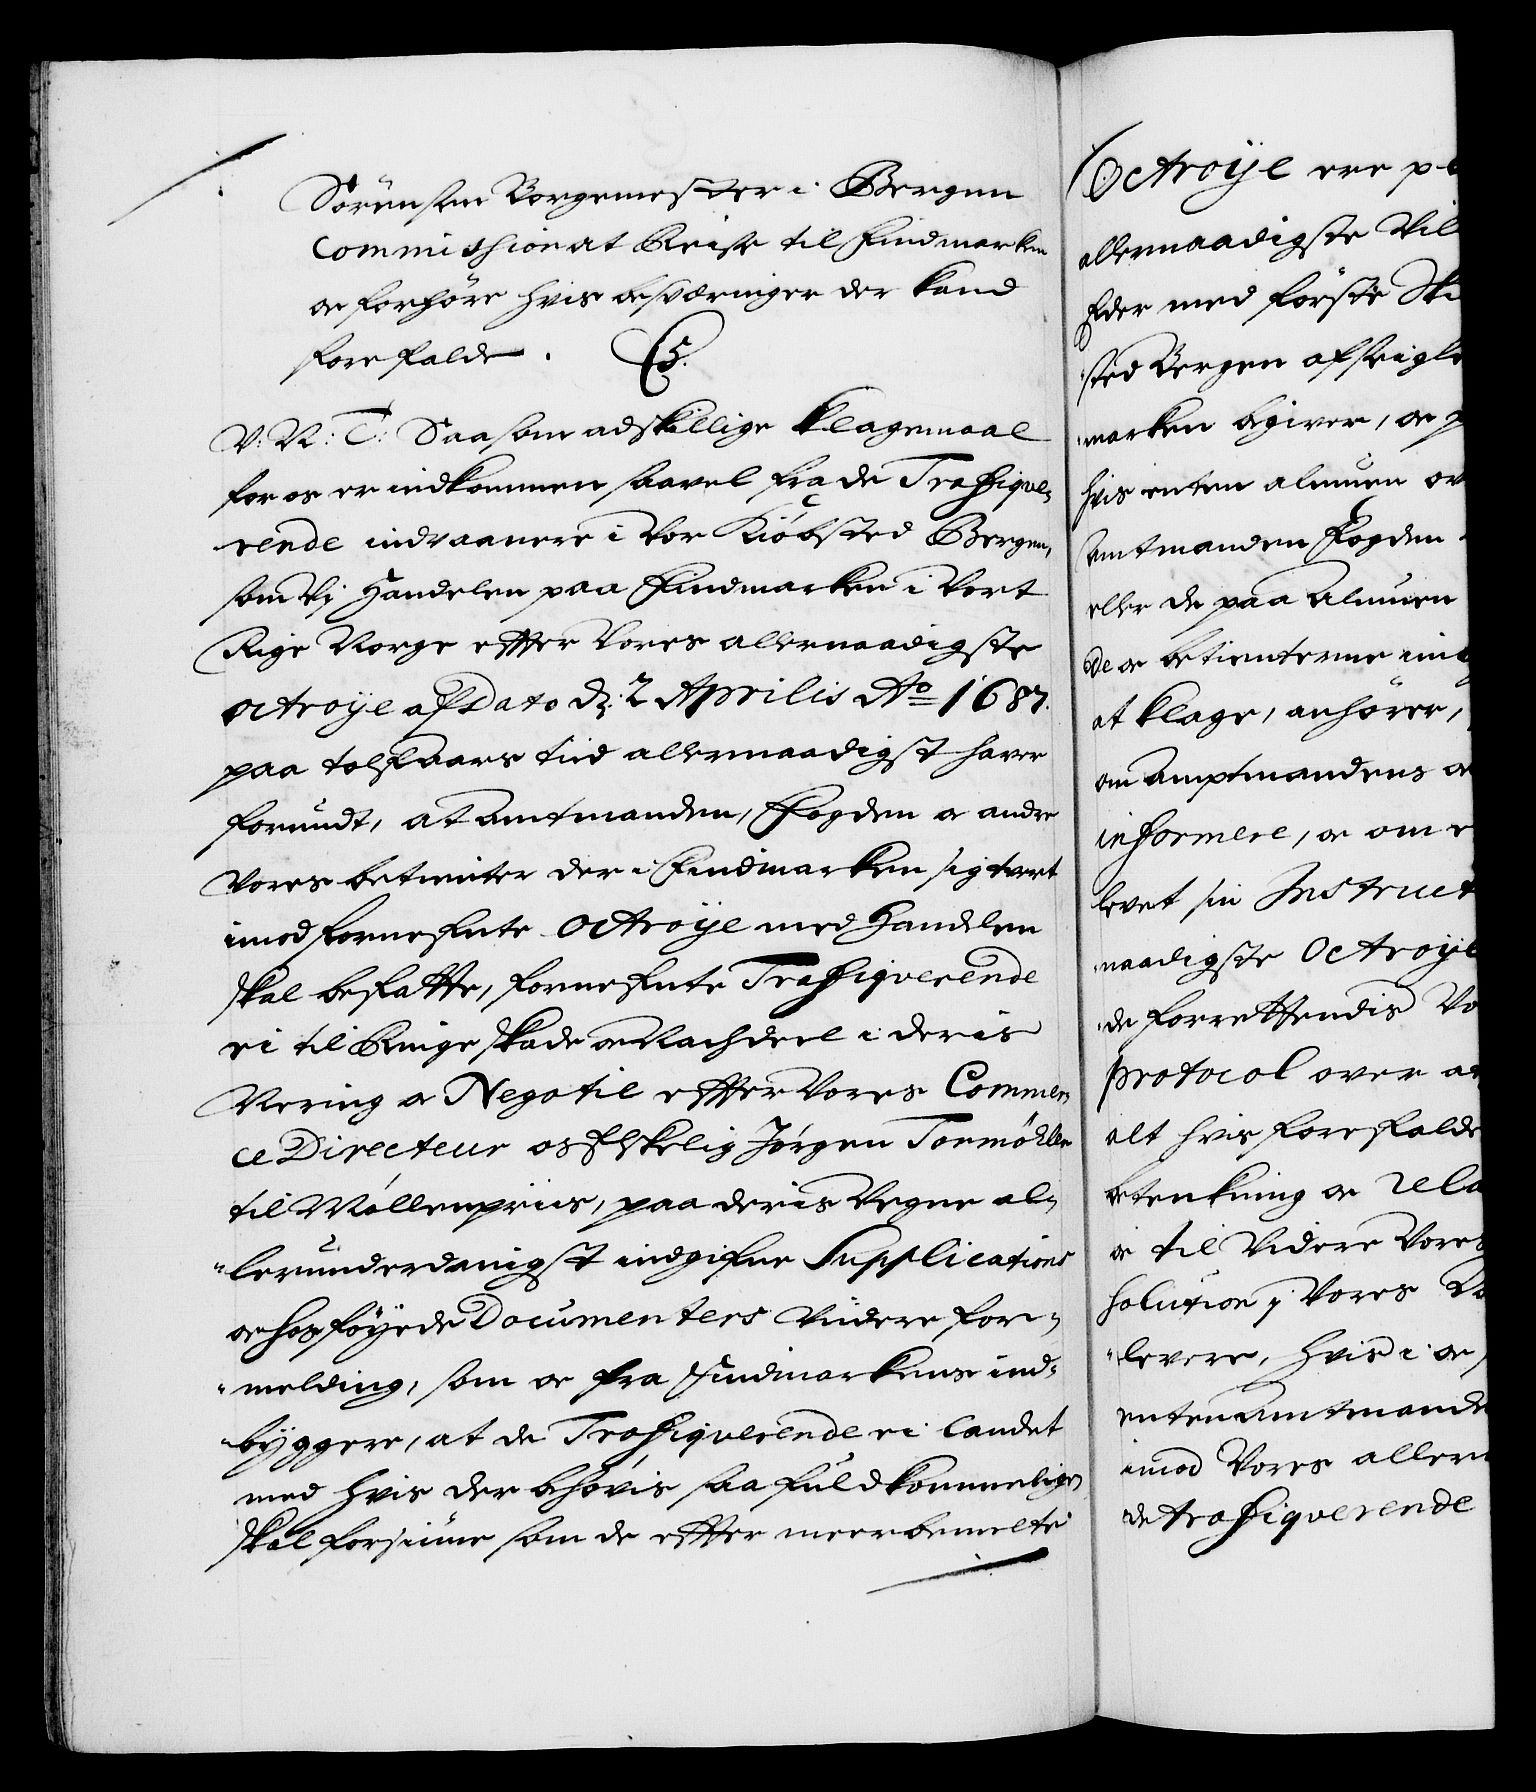 Sörensen Borgemester i Bergen
Commishion at Reise til Findmarken
oc forhöre hvis besværinger der kand
forefalde. C5.
V: N: T: Saasom adskillige Klagemaal
for os er indkommen saavel fra de Trafiqve-
rende indvaanere i Vor Kiöbsted Bergen,
som Vj Handelen paa Findmarken i Vort
Rige Norge effter Vores allernaadigste
Octroÿe af Dato d: 2 Aprilis Ao 1687.
paa tolf aars tiid allernaadigst haver
forundt, at Amtmanden, Fogden oc andre
Vores betienter der i Findmarken sig tvert
imod fornefnte Octroÿe med Handelen
skal befatte, fornefnte Trafiqverende
ei til Ringe skade oc Nachdeel i deris
Nering oc Negotie effter Vores Commer-
ce Directeur os Elskelig Jørgen Tormöhlen
til Møllenpriis, paa deris Vegne al-
lerunderdanigst indgifne Supplications
oc hosföyede Documenters Videre for-
melding, som oc fra Findmarkens ind-
byggere, at de Trafiqverende ei Landet
med hvis der behövis saa fuldkommelige
skal forsiune som de effter meerbemelte
Octroÿe ere p
allernaadigste Vil
Eder med förste Ski
sted Bergen afseigle
marken begiver, oc
hvis enten almuen ov
Amtmanden Fogden
eller de paa Almuen
de oc betienterne
at klage, anhörer,
om Amptmandens oc
informere, oc om
levet sin Instruct
naadigste Octroÿe
de forrettendis Vo
Protocol over
alt hvis forefalde
betenkning oc Rela
oc til Videre Vores
solution j Vores
levere, hvis i oc
enten Amtmande
imod Vores allern
de trafiqverende